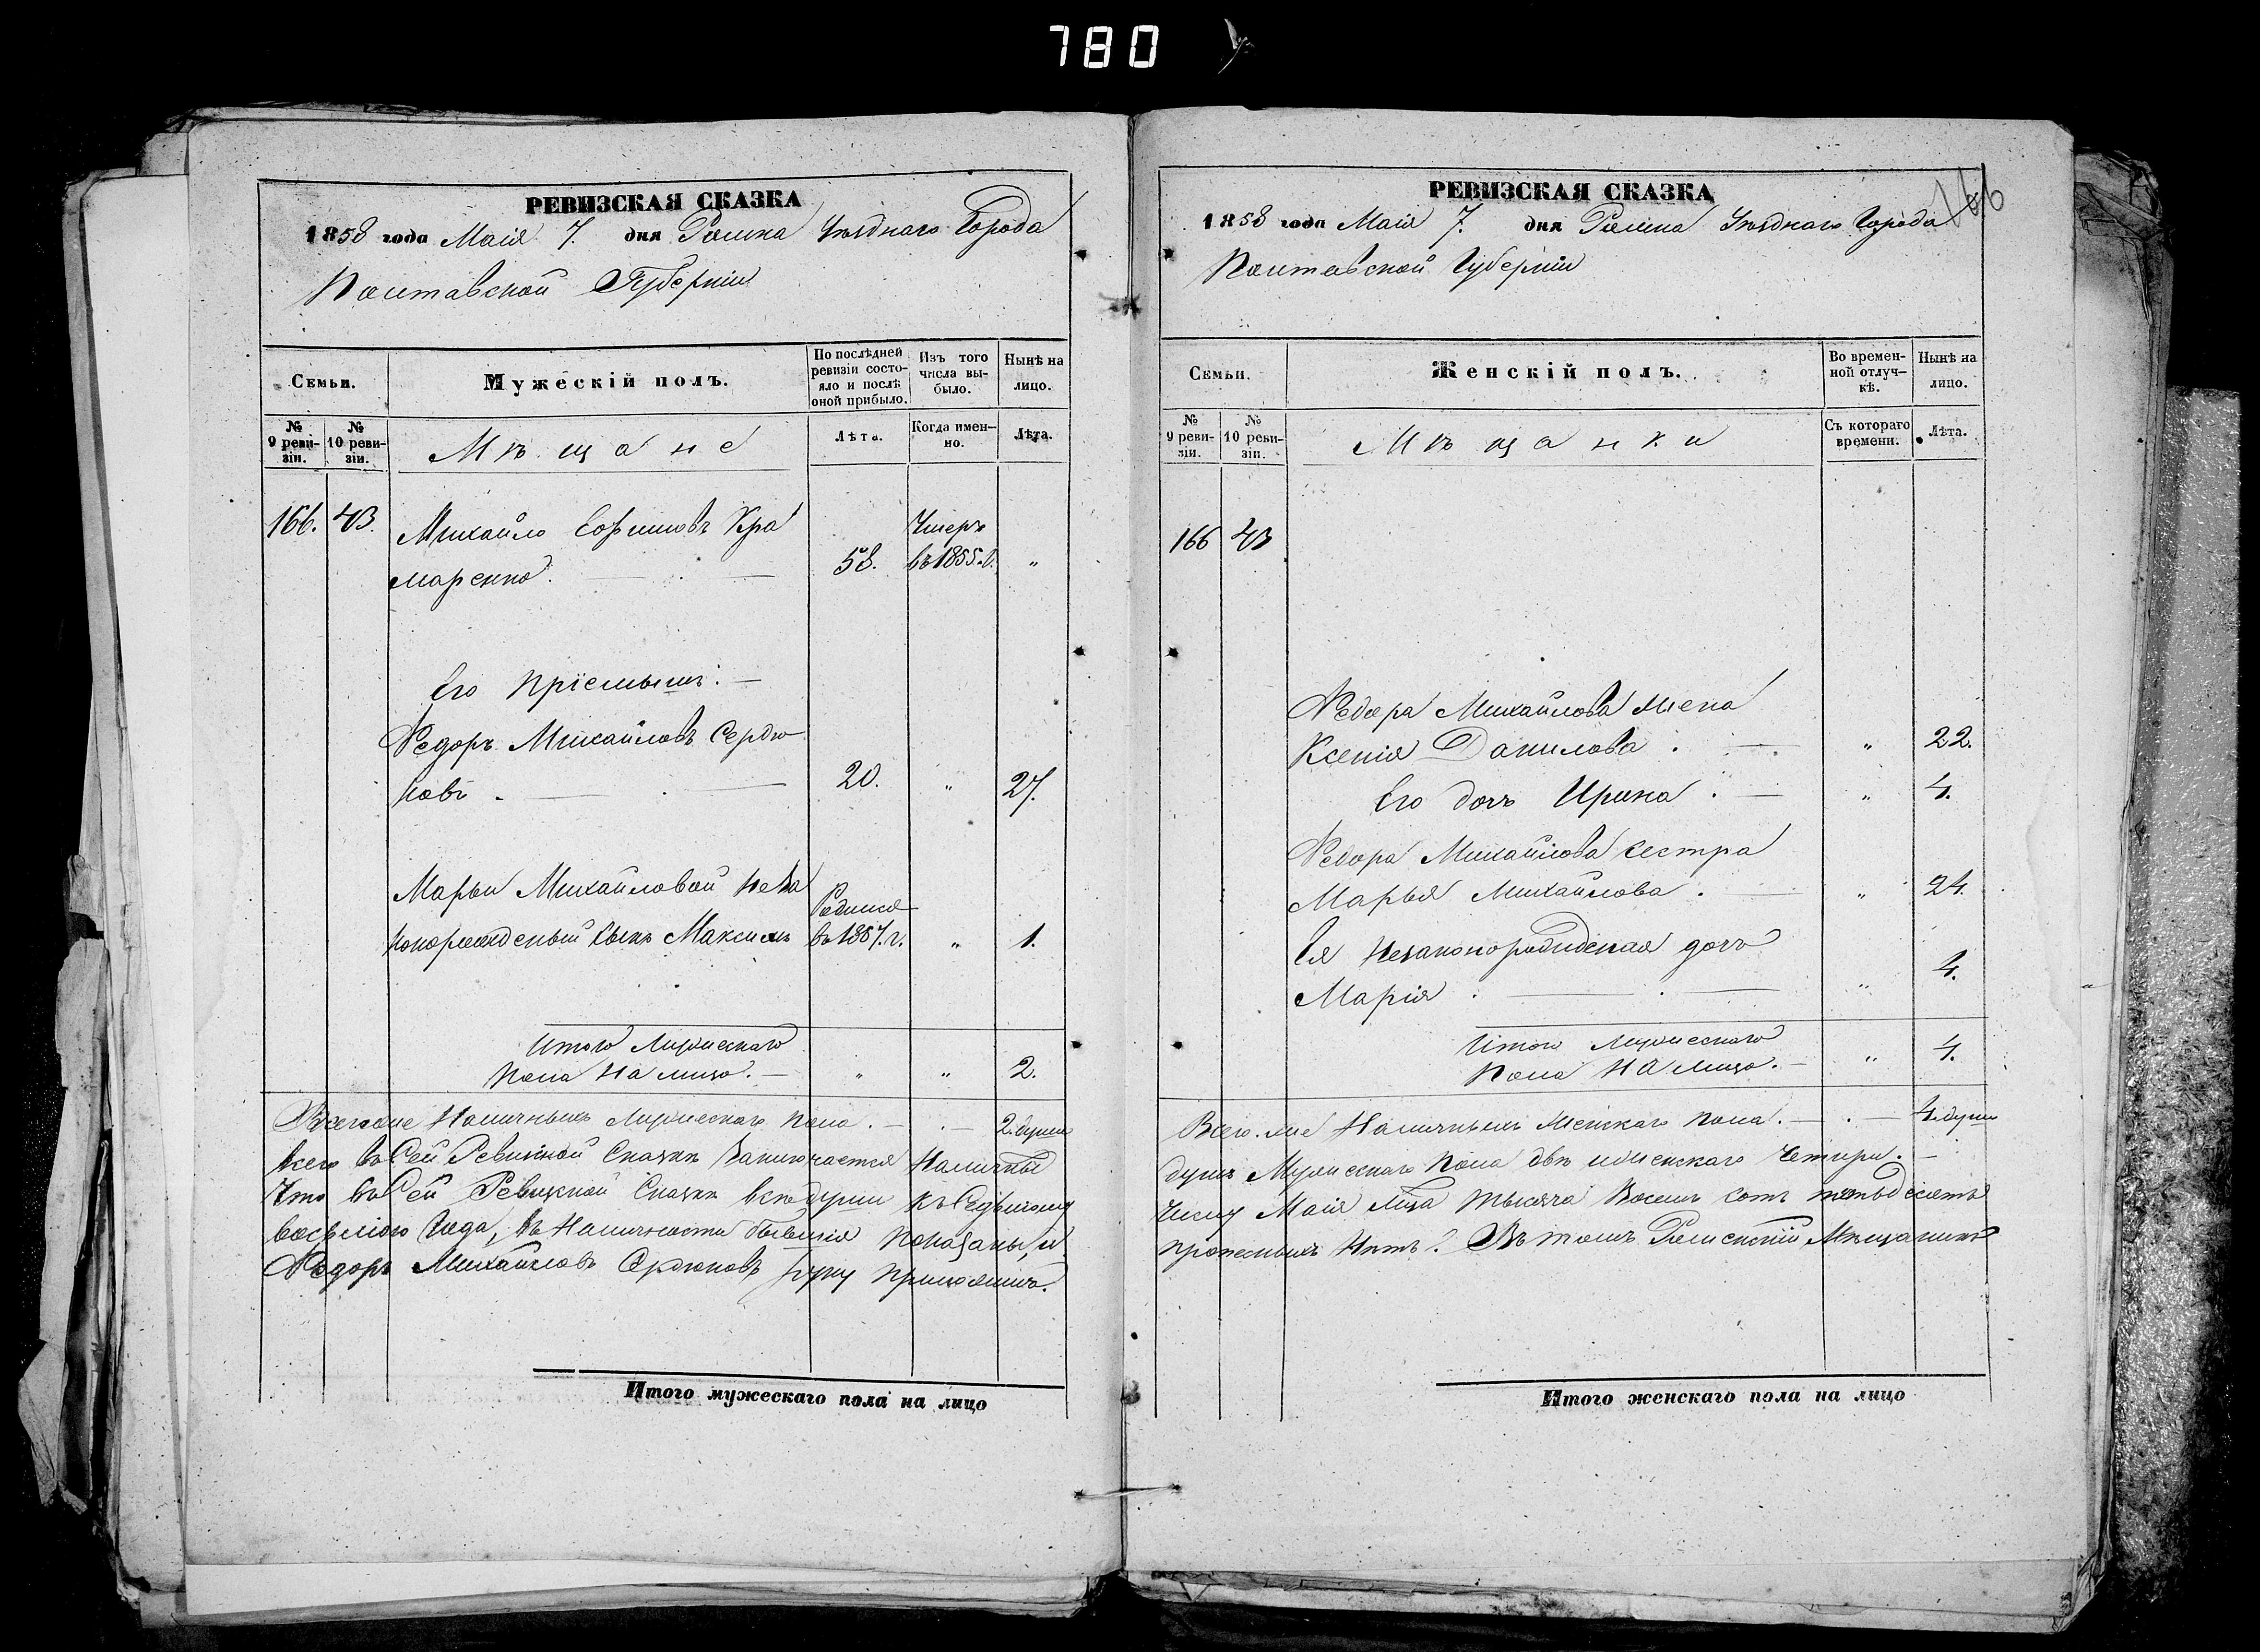 780
РЕВИЗСКАЯ СКАЗКА
1858 года Маія 7. дня Ромна Уѣзднаго Города
Полтавской Губерніи
Семьи.
Мужескій полъ.
По послѣдней ревизіи состояло и послѣ оной прибыло.
Изъ того числа выбыло.
Нынѣ на лицо.
№ 9 ревизіи.
№ 10 ревизіи.
Мѣщане
Лѣта.
Когда именно.
Лѣта.
166. 43. Михайло Кра
маренко. 58. Умеръ въ 1855. г. „
Его Пріемышъ. —
Федоръ Михайловъ Сердю
ковъ. 20. „ 27.
Марьи Михайловой неза
конорожденый сынъ Максимъ Родился въ 1857. г. „ 1.
Итого Мужескаго
Пола На лицо. — „ „ 2.
Всего же Наличныхъ Мужескаго Пола. — . — 2. души
всего въ Сей Ревизкой Сказкѣ Заключается Наличные
Что въ Сей Ревизкой Сказкѣ всѣ души къ Седьмому
восьмого Года, въ Наличности бывшія Показаны, и
Федоръ Михайловъ Сердюковъ руку приложилъ.
Итого мужескаго пола на лицо
РЕВИЗСКАЯ СКАЗКА
166
1858 года Маія 7. дня Ромна Уѣзднаго Города
Полтавской Губерніи
Семьи.
Женскій полъ.
Во временной отлучкѣ.
Нынѣ на лицо.
№ 9 ревизіи.
№ 10 ревизіи.
Мѣщанки
Съ котораго времени.
Лѣта.
166 43
Федора Михайлова жена
Ксенія Данилова . — „ 22.
Его дочь Ирина . — „ 4.
Федора Михайлова сестра
Марья Михайлова . — „ 24.
Ея Незаконорожденая дочь
Марія . — „ 4.
Итого Мужескаго
Пола На лицо. — „ 4.
Всего же Наличныхъ Женскаго Пола. — . — 4. души
душъ Мужескаго Пола двѣ и женскаго Четыри. —
Числу Маія Мца тысяча Восемь сотъ пятьдесятъ
прописныхъ Нѣтъ. Въ томъ Роменскій Мѣщанинъ
Итого женскаго пола на лицо